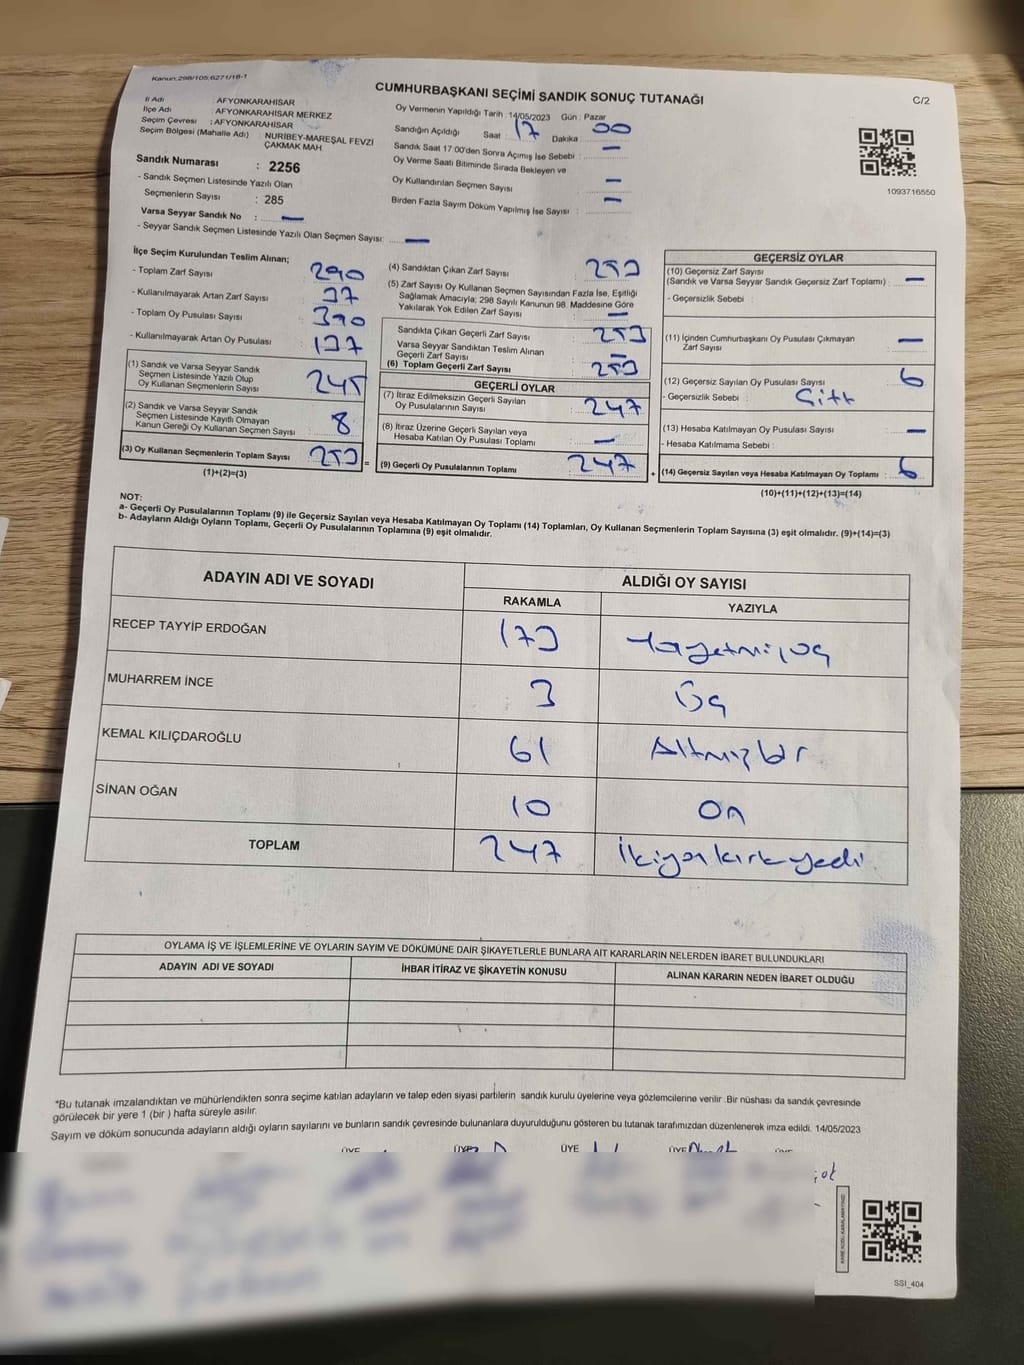 Kanun:298/105;6271/18-1
CUMHURBAŞKANI SEÇİMİ SANDIK SONUÇ TUTANAĞI
C/2
İl Adı : AFYONKARAHİSAR
İlçe Adı : AFYONKARAHİSAR MERKEZ
Seçim Çevresi : AFYONKARAHİSAR
Seçim Bölgesi (Mahalle Adı) : NURİBEY-MAREŞAL FEVZİ ÇAKMAK MAH.
Sandık Numarası : 2256
- Sandık Seçmen Listesinde Yazılı Olan
Seçmenlerin Sayısı : 285
Varsa Seyyar Sandık No : —
- Seyyar Sandık Seçmen Listesinde Yazılı Olan Seçmen Sayısı: —
Oy Vermenin Yapıldığı Tarih :14/05/2023 Gün : Pazar
Sandığın Açıldığı Saat : 17 Dakika : 00
Sandık Saat 17:00'den Sonra Açımış İse Sebebi : —
Oy Verme Saati Bitiminde Sırada Bekleyen ve
Oy Kullandırılan Seçmen Sayısı : —
Birden Fazla Sayım Döküm Yapılmış İse Sayısı : —
1093716550
İlçe Seçim Kurulundan Teslim Alınan;
- Toplam Zarf Sayısı : 290
- Kullanılmayarak Artan Zarf Sayısı : 37
- Toplam Oy Pusulası Sayısı : 390
- Kullanılmayarak Artan Oy Pusulası : 137
(1) Sandık ve Varsa Seyyar Sandık
Seçmen Listesinde Yazılı Olup
Oy Kullanan Seçmenlerin Sayısı : 245
(2) Sandık ve Varsa Seyyar Sandık
Seçmen Listesinde Kayıtlı Olmayan
Kanun Gereği Oy Kullanan Seçmen Sayısı : 8
(3) Oy Kullanan Seçmenlerin Toplam Sayısı : 253
(1)+(2)=(3)
(4) Sandıktan Çıkan Zarf Sayısı : 253
(5) Zarf Sayısı Oy Kullanan Seçmen Sayısından Fazla İse, Eşitliği
Sağlamak Amacıyla; 298 Sayılı Kanunun 98. Maddesine Göre
Yakılarak Yok Edilen Zarf Sayısı : —
Sandıkta Çıkan Geçerli Zarf Sayısı : 253
Varsa Seyyar Sandıktan Teslim Alınan
Geçerli Zarf Sayısı : —
(6) Toplam Geçerli Zarf Sayısı : 253
GEÇERLİ OYLAR
(7) İtiraz Edilmeksizin Geçerli Sayılan
Oy Pusulalarının Sayısı : 247
(8) İtiraz Üzerine Geçerli Sayılan veya
Hesaba Katılan Oy Pusulası Toplamı : —
= (9) Geçerli Oy Pusulalarının Toplamı : 247
GEÇERSİZ OYLAR
(10) Geçersiz Zarf Sayısı
(Sandık ve Varsa Seyyar Sandık Geçersiz Zarf Toplamı) : —
- Geçersizlik Sebebi :
(11) İçinden Cumhurbaşkanı Oy Pusulası Çıkmayan
Zarf Sayısı : —
(12) Geçersiz Sayılan Oy Pusulası Sayısı : 6
- Geçersizlik Sebebi :
(13) Hesaba Katılmayan Oy Pusulası Sayısı : —
- Hesaba Katılmama Sebebi :
+ (14) Geçersiz Sayılan veya Hesaba Katılmayan Oy Toplamı : 6
(10)+(11)+(12)+(13)=(14)
NOT:
a- Geçerli Oy Pusulalarının Toplamı (9) ile Geçersiz Sayılan veya Hesaba Katılmayan Oy Toplamı (14) Toplamları, Oy Kullanan Seçmenlerin Toplam Sayısına (3) eşit olmalıdır. (9)+(14)=(3)
b- Adayların Aldığı Oyların Toplamı, Geçerli Oy Pusulalarının Toplamına (9) eşit olmalıdır.
ADAYIN ADI VE SOYADI
ALDIĞI OY SAYISI
RAKAMLA YAZIYLA
RECEP TAYYİP ERDOĞAN 173 Yüzyetmişüç
MUHARREM İNCE 3 Üç
KEMAL KILIÇDAROĞLU 61 Altmışbir
SİNAN OĞAN 10 On
TOPLAM 247 İkiyüzkırkyedi
OYLAMA İŞ VE İŞLEMLERİNE VE OYLARIN SAYIM VE DÖKÜMÜNE DAİR ŞİKAYETLERLE BUNLARA AİT KARARLARIN NELERDEN İBARET BULUNDUKLARI
ADAYIN ADI VE SOYADI İHBAR İTİRAZ VE ŞİKAYETİN KONUSU ALINAN KARARIN NEDEN İBARET OLDUĞU
*Bu tutanak imzalandıktan ve mühürlendikten sonra seçime katılan adayların ve talep eden siyasi partilerin sandık kurulu üyelerine veya gözlemcilerine verilir .Bir nüshası da sandık çevresinde
görülecek bir yere 1 (bir ) hafta süreyle asılır.
Sayım ve döküm sonucunda adayların aldığı oyların sayılarını ve bunların sandık çevresinde bulunanlara duyurulduğunu gösteren bu tutanak tarafımızdan düzenlenerek imza edildi. 14/05/2023
ÜYE ÜYE ÜYE ÜYE
SSI_404